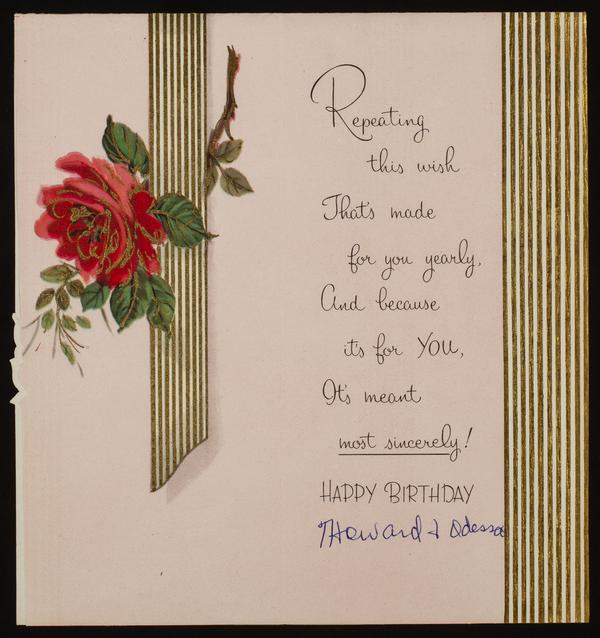 Repeating
this wish
That's made
for you yearly,
And because
it's for YOU,
It's meant
most sincerely!
HAPPY BIRTHDAY
Howard & Odessa